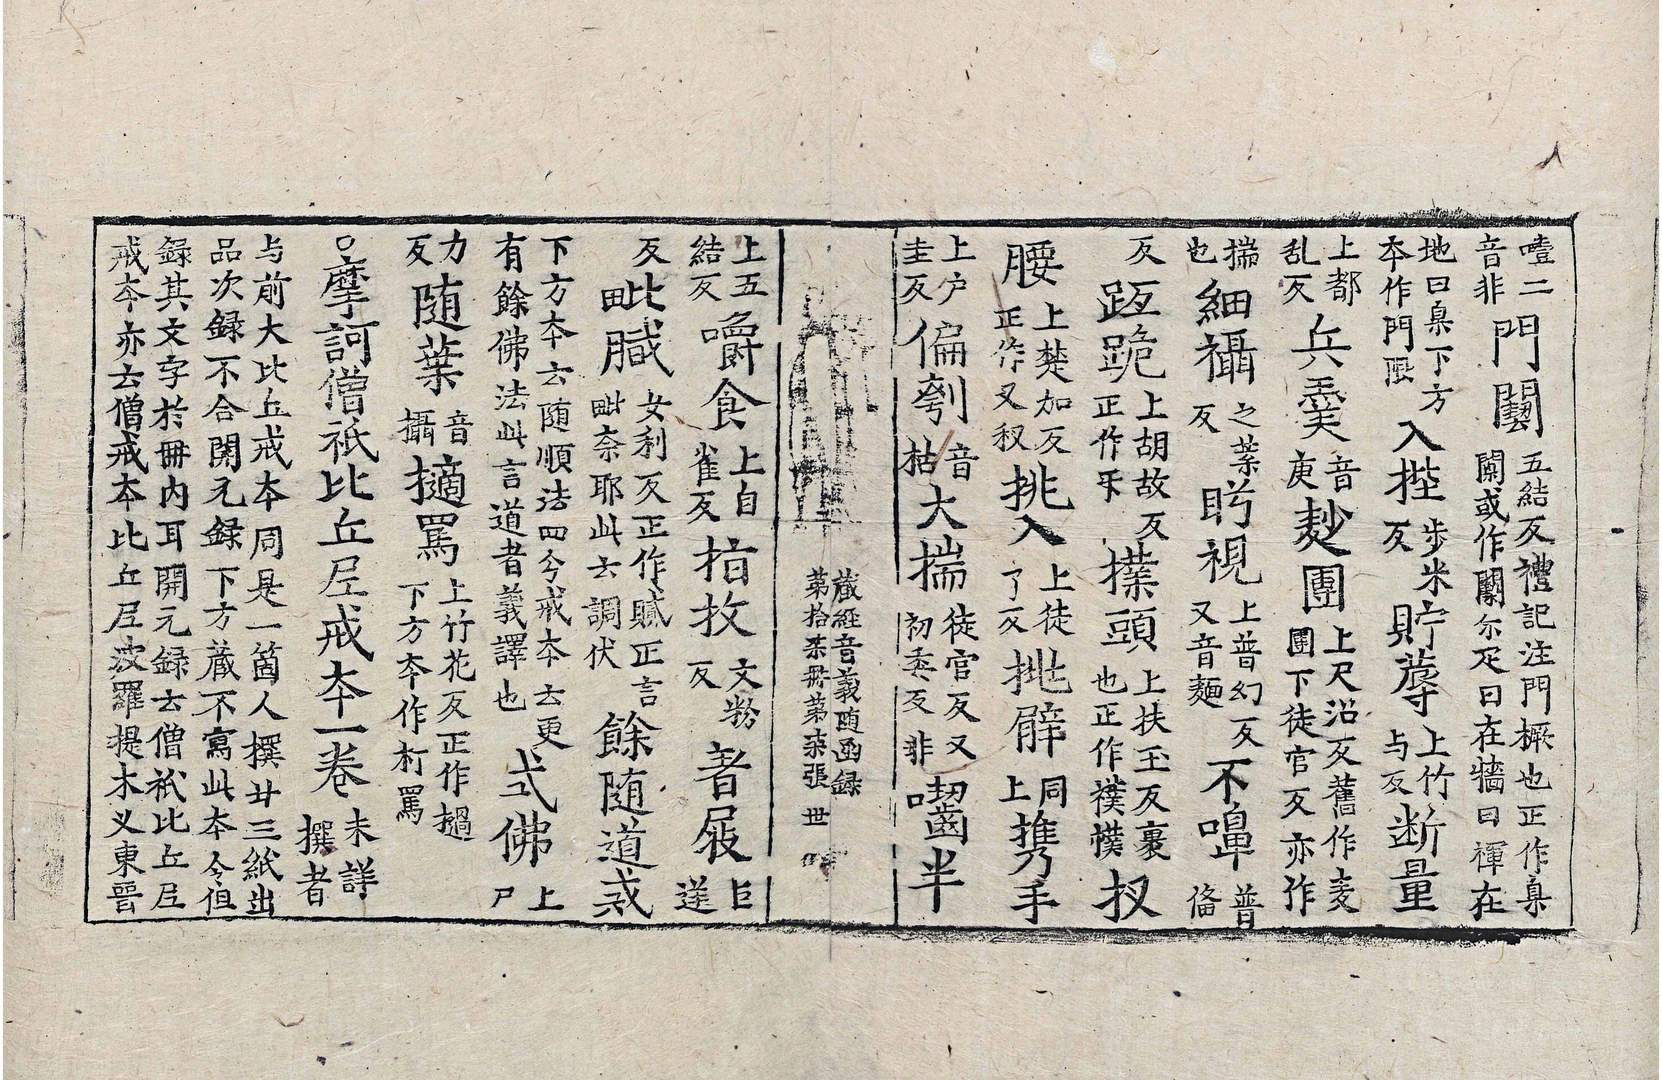 噎二音非門闑五結反禮記注門橛也正作臬闑或作闑尔疋曰在牆曰楎在
地曰臬下方本作門風入㧄步米反貯蓐上竹与反断量
上都乱反兵羮音庚麨團上尺沼反舊作麦圑下徒官反亦作
揣也細攝之葉反眄視上普幻反又音麵不嚊普俻
反跙跪上胡故反正作𢑥襆頭上扶玉反裹也正作襆幞扠
腰上楚加反正作叉扠挑入上徒了反挑髀上同携手
上户圭反偏刳音枯大揣徒官反又初委反非嚙半
藏經音義随函録
第拾柒冊第柒張 世
上五結反嚼食上自雀反抆文粉反著屐巨逆
反毗膱女利反正作膩正言毗奈耶此云調伏餘随道戒
下方本云随順法四今戒本云更有餘佛法此言道者義譯也式佛上尸
力反随葉音攝擿罵上竹花反正作撾下方本作杔罵
摩訶僧祇比丘尼戒夲一卷未詳撰者
与前大比丘戒本同是一箇人撰廿三紙出
品次録不合開元録下方藏不寫此本今但
録其文字於冊内耳開元録云僧祇比丘尼
戒本亦云僧戒本比丘尼波羅提木义東晉